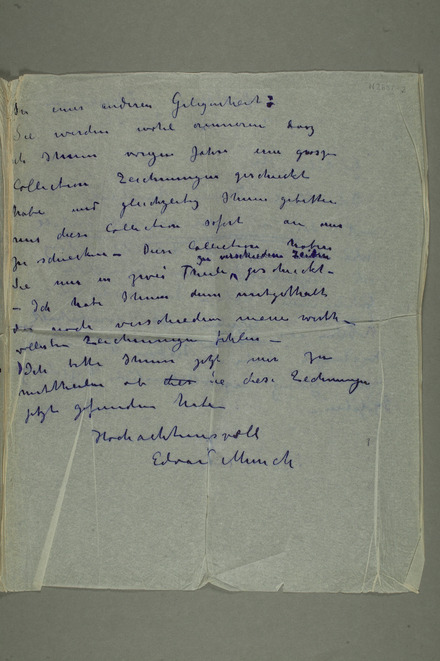 In einer anderen Gelegenheit:
Sie werden wohl erinneren dass
ich Ihnen vorgen Jahre eine grosse
Collection Zeichnungen geschickt
habe und gleichzeitig Ihnen gebetten
mir diese Collection sofort an mir
zu schicken – Diese Collection haben
zu verschieden Zeiten
Sie mir in zwei Theile geschickt –
– Ich habe Ihnen dann mitgetheilt
das noch verschieden meine werth–
vollsten Zeichnungen fehlen –
Ich bitte Ihnen jetzt mir zu
mittheilen ob sie diese Zechnungen
jetzt gefunden haben
Hochachtungsvoll
Edvard Munch